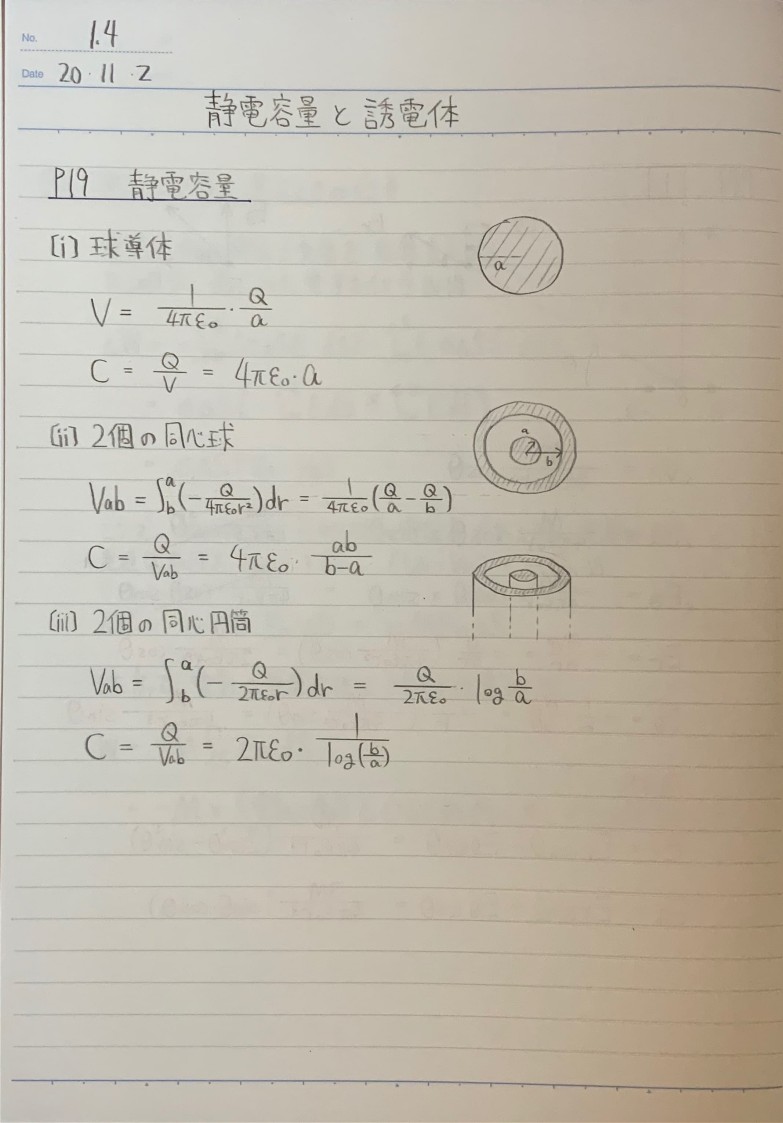 No. 1.4
Date 20・11・2
静電容量と誘電体
P19 静電容量
[i] 球導体
a
V = 1/4πε₀ · Q/a
C = Q/V = 4πε₀・a
[ii] 2個の同心球
a
b
Vab = ∫_b^a (-Q/4πε₀r²)dr = 1/4πε₀ (Q/a - Q/b)
C = Q/Vab = 4πε₀ · ab/b-a
[iii] 2個の同心円筒
Vab = ∫_b^a (-Q/2πε₀r)dr = Q/2πε₀ · log b/a
C = Q/Vab = 2πε₀ · 1/log(b/a)